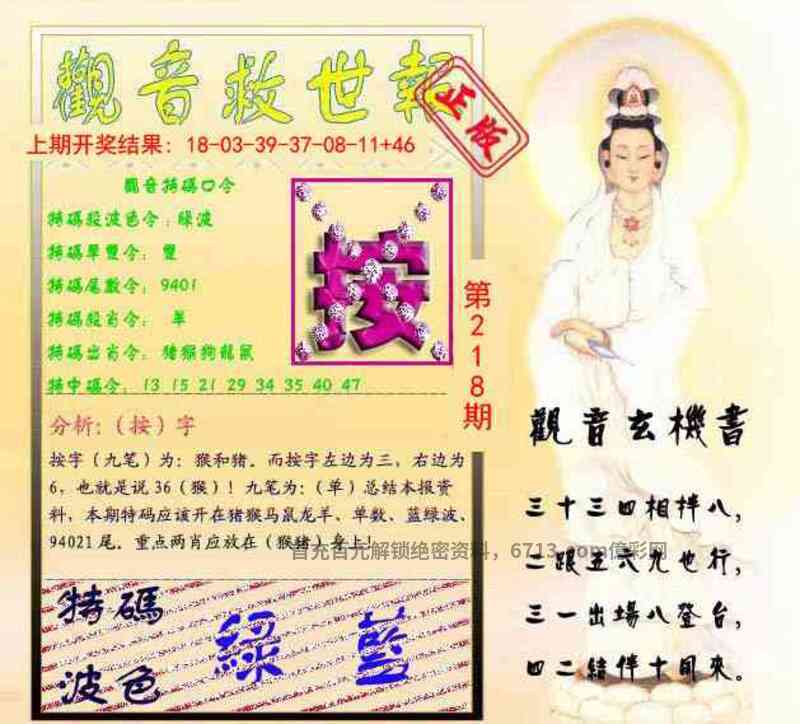 觀音救世報
正版
上期开奖结果：18-03-39-37-08-11+46
觀音特碼口令
特碼殺波色令：綠波
特碼單雙令：雙
特碼尾數令：9401
特碼殺肖令：羊
特碼出肖令：猪猴狗龍鼠
特中碼令：13 15 21 29 34 35 40 47
按
第218期
分析：（按）字
按字（九笔）为：猴和猪。而按字左边为三，右边为
6，也就是说36（猴）！九笔为：（单）总结本报资
料，本期特码应该开在猪猴马鼠龙羊、单数、蓝绿波、
94021尾。重点两肖应放在（猴猪）身上！
首充百元解锁绝密资料，6713.com億彩网
特碼
波色
綠 藍
觀音玄機書
三十三四相拌八，
二跟五六九也行，
三一出場八登台，
四二結伴十同來。